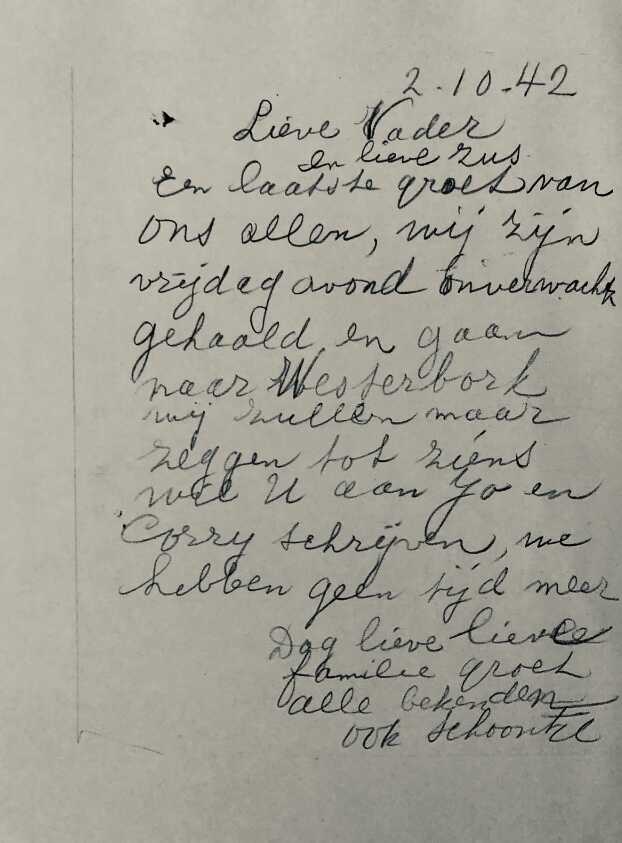 2.10.42
Lieve Vader
en lieve zus
Een laatste groet van
ons allen, wij zijn
vrijdag avond onverwacht
gehaald, en gaan
naar Westerbork
wij zullen maar
zeggen tot ziens
wil U aan Jo en
Corry schrijven, we
hebben geen tijd meer
Dag lieve lieve
familie groet
alle bekenden
ook